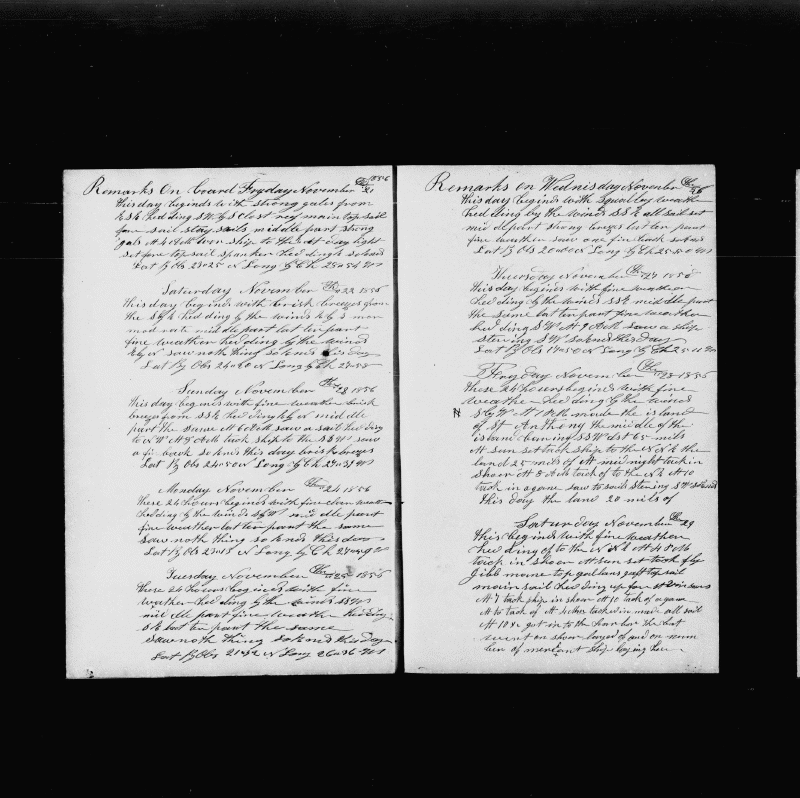 Remarks On board Fryday November The 21 1856
this day beginds with strong gales from
E S E hed ding S W by S Clost reef main top sail
fore sail stay sails middle part strong
gals At 4 Oclk wore ship to the at day light
set fore top sail spanker hed ding so Ends
Lat By Obs 23"25 N Long By Ch 25"54 W
Saturday November The 22 1856
this day beginds with brisk breezes from
the S by E hed ding by the winds E by S mor
mod rate middle part lat ter part
fine weather hed ding by the winds
E by N saw noth thing so Ends this day
Lat By Obs 24"00 N Long By Ch 27"58
Sunday November The 23 1856
this day begins with fine weather brisk
breezes from S S E hed ding E by N middle
part the Same At 6 Oclk saw a sail hed ding
to N W At 9 Oclk tack ship to the S S W saw
a fin back so Ends this day brisk breezes
Lat By Obs 24"50 N Long By Ch 27"31 W
Monday November The 24 1856
these 24 hours begins with fine clear weather
hed ding by the winds S by W mid dle part
fine weather lat ter part the same
Saw noth thing so Ends this day
Lat By Obs 23"15 N Long By Ch 27"09 W
Tuesday November The 25 1856
these 24 hours begines with fine
weather hed ding by the winds S S W
mid dle part fine weather hed ding
S E lat ter part the same
Saw noth thing so Ends this day
Lat By Obs 21"32 N Long 26"36 W
Remarks on Wednisday November The 26
this day begins with squaly weather
hed ding by the winds S S E all sail set
mid dle part strong breezes lat ter part
fine weather saw one fin back so Ends
Lat By Obs 20"00 N Long By Ch 25"50 W
Thursday November The 27 1856
this day begins with fine weather
hed ding by the winds S S E mid dle part
the same lat ter part fine weather
hed ding S W At 9 Oclk saw a ship
stering S W so Ends this Day
Lat By Obs 17"50 N Long By Ch 25"11 W
Fryday November The 28 1856
these 24 hours begins with fine
weather hed ding by the winds
N
S by W At 1 Oclk made the island
of St Anthony the middle of the
island baring S S W dist 65 mils
At sun set tack ship to the N N E the
land 25 mils of At mid night tack in
shoar At 8 Oclk tack of to the N E At 10
tack in againe saw to sails stering S W so Ends
this day the land 20 mils of
Saturday November The 29
this begins with fine weather
hed ding of to the N N E At 4 Oclk
tack in shoar At sun set took fly
Jibb maine top gallans gaff top sail
main sail hed ding up for
At 7 tack ship in shoar At 10 tack of againe
At 10 tack of At 4 Oclk tacked in made all sail
At 10 got in to the har bor the boat
went on shoar layed of and on num
ber of merchant ship laying here